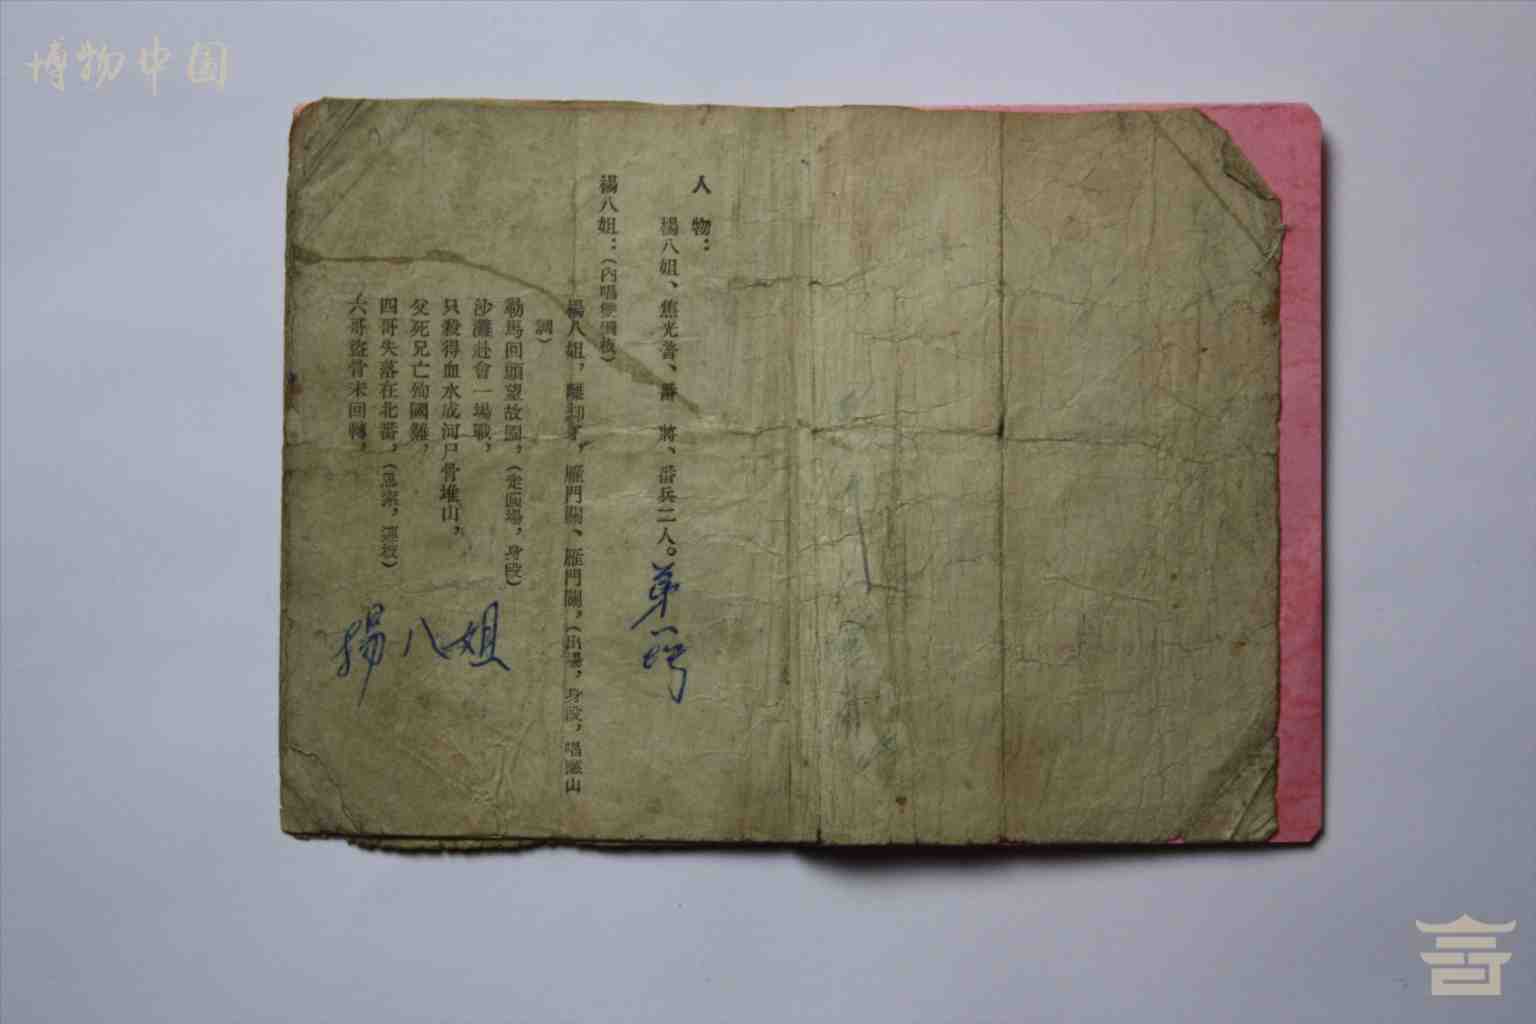 博物中国
人物：
楊八姐、焦光普、番將、番兵二人。
第一号
楊八姐：（內唱倒板）
楊八姐，離却了，雁門關、雁門關，（出場，身段，唱
調）
勒馬回頭望故園，（走圓場，身段）
沙灘赴會一場戰，
只殺得血水成河尸骨堆山，
父死兄亡殉國難，
四哥失落在北番，
六哥盜骨未回轉，
楊八姐